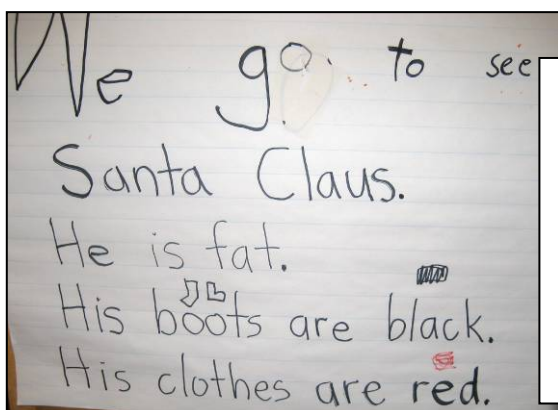 We go. to see
Santa Claus.
He is fat.
His boots are black.
His clothes are red.